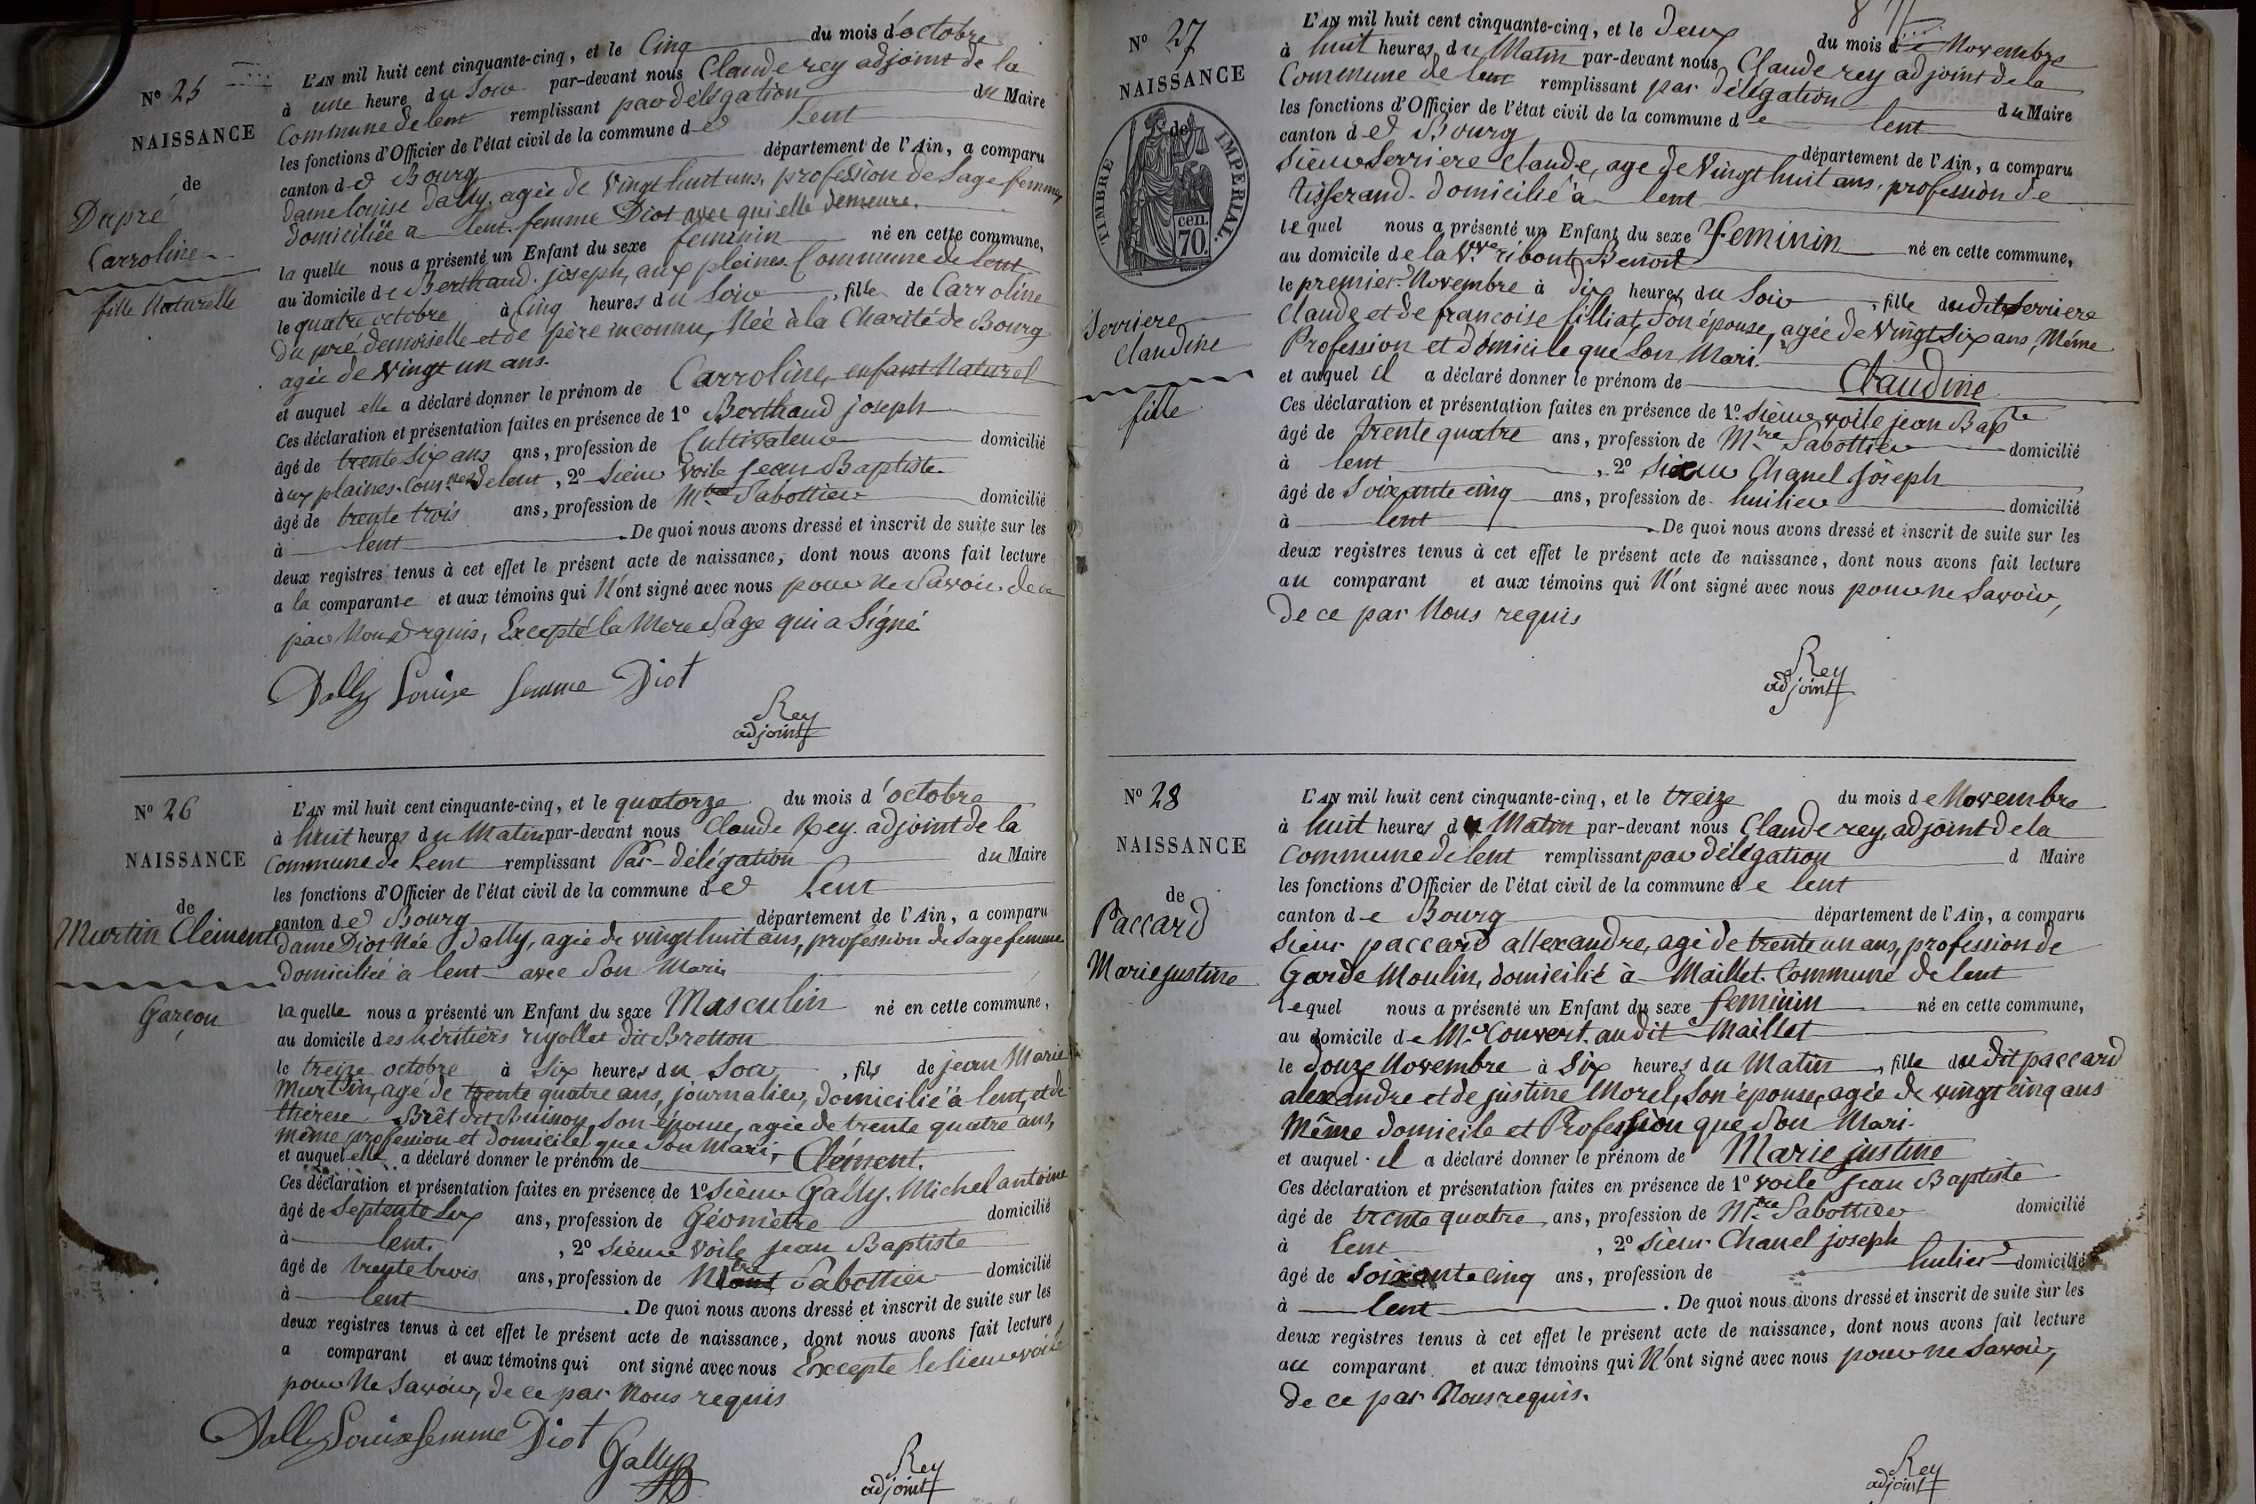 N° 25
NAISSANCE
de
Dupré
Carroline
fille Naturelle
L'AN mil huit cent cinquante-cinq, et le Cinq du mois d'octobre
à une heure du Soir par-devant nous Claude rey adjoint de la
Commune de lent remplissant par délégation du Maire
les fonctions d'Officier de l'état civil de la commune de Lent
canton de Bourg département de l'Ain, a comparu
dame louise dally, agée de vingt huit ans, profession de Sage femme,
domiciliée a lent. femme Diot avec qui elle demeure.
la quelle nous a présenté un Enfant du sexe feminin né en cette commune,
au domicile de Berthaud joseph, aux pleines Commune de lent
le quatre octobre à Cinq heures du Soir, fille de Carroline
Du pré demoiselle et de père inconnu, Née à la Charité de Bourg
agée de Vingt un ans.
et auquel elle a déclaré donner le prénom de Carroline, enfant Naturel
Ces déclaration et présentation faites en présence de 1° Berthaud joseph
âgé de trente Six ans ans, profession de Cultivateur domicilié
à ux plaines. Com.nes de lent, 2° Sieur Voile Jean Baptiste
âgé de trente trois ans, profession de M.tre Sabottier domicilié
à lent. De quoi nous avons dressé et inscrit de suite sur les
deux registres tenus à cet effet le présent acte de naissance, dont nous avons fait lecture
a la comparante et aux témoins qui N'ont signé avec nous pour ne Savoir de ce
par Nous rquis, Excepté la Mere Sage qui a Signé
Dally Louise femme Diot
Rey
adjoint
N° 26
NAISSANCE
de
Murtin Clément
Garçon
L'AN mil huit cent cinquante-cinq, et le quatorze du mois d'octobre
à huit heures du Matin par-devant nous Claude Rey adjoint de la
Commune de Lent remplissant Par délégation du Maire
les fonctions d'Officier de l'état civil de la commune de Lent
canton de Bourg département de l'Ain, a comparu
dame Diot Née Dally, agée de vingt huit ans, profession de Sage femme
domiciliée à lent avec Son Mari
la quelle nous a présenté un Enfant du sexe Masculin né en cette commune,
au domicile des héritiers rigollet dit Bretton
le treize octobre à Six heures du Soir, fils de jean Marie
Murtin, agé de trente quatre ans, journalier, domicilié à lent, et de
thérese Brêt dit Buisson, Son épouse, agée de trente quatre ans,
même profession et domicile que Son Mari,
et auquel elle a déclaré donner le prénom de Clément.
Ces déclaration et présentation faites en présence de 1° Sieur Gally, Michel antoine
âgé de Septente Six ans, profession de Géomètre domicilié
à lent., 2° Sieur Voile Jean Baptiste
âgé de trente trois ans, profession de Mtre Sabottier domicilié
à lent. De quoi nous avons dressé et inscrit de suite sur les
deux registres tenus à cet effet le présent acte de naissance, dont nous avons fait lecture
a comparant et aux témoins qui ont signé avec nous Excepte le Sieur voile
pour Ne Savoir, de ce par Nous requis
Dally Louise femme Diot
Gally
Rey
adjoint
N° 27
NAISSANCE
de
TIMBRE IMPERIAL.
cen.
70.
Serriere
Claudine
fille
L'AN mil huit cent cinquante-cinq, et le deux du mois de Novembre
à huit heures du Matin par-devant nous Claude rey adjoint de la
Commune de lent remplissant par délégation du Maire
les fonctions d'Officier de l'état civil de la commune de lent
canton de Bourg département de l'Ain, a comparu
Sieur Serriere Claude, age de Vingt huit ans, profession de
tisserand. domicilié à lent
lequel nous a présenté un Enfant du sexe Feminin né en cette commune,
au domicile de la Vve ribout Benoit
le premier Novembre à dix heures du Soir, fille dudit Serriere
Claude et de francoise filliat, Son épouse, agée de Vingt Six ans, Même
Profession et domicile que Son Mari.
et auquel il a déclaré donner le prénom de Claudine
Ces déclaration et présentation faites en présence de 1° Sieur voile jean Bapte
âgé de trente quatre ans, profession de M.tre Sabottier domicilié
à lent, 2° Sieur Chanel Joseph
âgé de Soixante cinq ans, profession de huilier domicilié
à lent. De quoi nous avons dressé et inscrit de suite sur les
deux registres tenus à cet effet le présent acte de naissance, dont nous avons fait lecture
au comparant et aux témoins qui N'ont signé avec nous pour ne Savoir,
de ce par Nous requis
Rey
adjoint
N° 28
NAISSANCE
de
Paccard
Marie justine
L'AN mil huit cent cinquante-cinq, et le treize du mois de Novembre
à huit heures du Matin par-devant nous Claude rey, adjoint de la
Commune de lent remplissant par délégation d Maire
les fonctions d'Officier de l'état civil de la commune de lent
canton de Bourg département de l'Ain, a comparu
Sieur paccard allexandre, agé de trente un ans, profession de
Garde Moulin, domicilié à Maillet Commune de lent
lequel nous a présenté un Enfant du sexe feminin né en cette commune,
au domicile de Mr Couvert. audit Maillet
le douze Novembre à Six heures du Matin, fille du dit paccard
alexandre et de justine Morel, Son épouse, agée de vingt cinq ans
Même domicile et Profession que Son Mari.
et auquel il a déclaré donner le prénom de Marie justine
Ces déclaration et présentation faites en présence de 1° voile Jean Baptiste
âgé de trente quatre ans, profession de M.tre Sabottier domicilié
à lent, 2° Sieur Chanel joseph
âgé de Soixante cinq ans, profession de hulier domicilié
à lent. De quoi nous avons dressé et inscrit de suite sur les
deux registres tenus à cet effet le présent acte de naissance, dont nous avons fait lecture
au comparant et aux témoins qui N'ont signé avec nous pour ne Savoir,
de ce par Nous requis.
Rey
adjoint